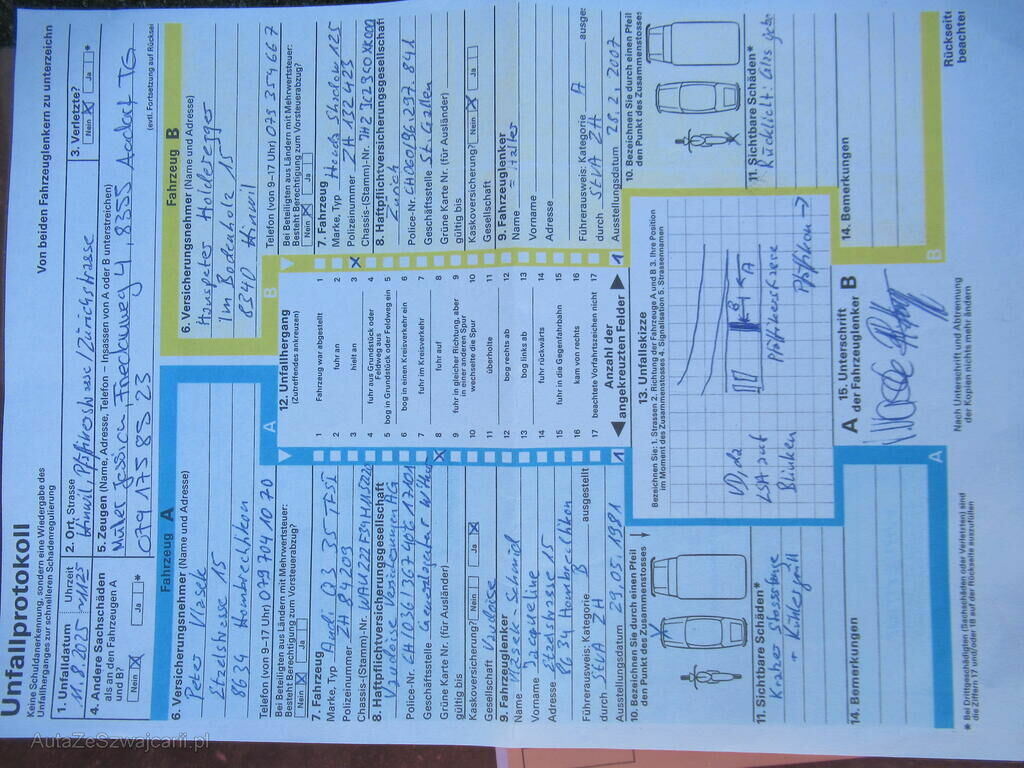 Unfallprotokoll
Keine Schuldanerkennung, sondern eine Wiedergabe des
Unfallherganges zur schnelleren Schadenregulierung
Von beiden Fahrzeuglenkern zu unterzeichn
1. Unfalldatum Uhrzeit
11.8.2025 ~1125
2. Ort, Strasse
Hinwil, Pfäffikerstrasse / Zürichstrasse
3. Verletzte?
Nein Ja *
4. Andere Sachschäden
als an den Fahrzeugen A
und B?
Nein Ja *
5. Zeugen (Name, Adresse, Telefon – Insassen von A oder B unterstreichen)
Müller Jessica, 4, 8355 Aadorf TG
079 175 85 23
(evtl. Fortsetzung auf Rücksei
Fahrzeug A
6. Versicherungsnehmer (Name und Adresse)
Peter Wasek
Etzelstrasse 15
8634 Hombrechtikon
Telefon (von 9–17 Uhr) 079 704 10 70
Bei Beteiligten aus Ländern mit Mehrwertsteuer:
Besteht Berechtigung zum Vorsteuerabzug?
Nein Ja
7. Fahrzeug
Marke, Typ Audi Q3 35 TFSI
Polizeinummer ZH 84209
Chassis-(Stamm)-Nr.
8. Haftpflichtversicherungsgesellschaft
Vaudoise Versicherungen AG
Police-Nr.
Geschäftsstelle
Grüne Karte Nr. (für Ausländer)
gültig bis
Kaskoversicherung? Nein Ja
Gesellschaft Vaudoise
9. Fahrzeuglenker
Name Wasek-Schmid
Vorname Jacqueline
Adresse Etzelstrasse 15
8634 Hombrechtikon
Führerausweis: Kategorie B ausgestellt
durch StVA ZH
Ausstellungsdatum 29.05.1981
10. Bezeichnen Sie durch einen Pfeil
den Punkt des Zusammenstosses
11. Sichtbare Schäden*
Kratzer Stossstange
+ Kühlergrill
14. Bemerkungen
Fahrzeug B
6. Versicherungsnehmer (Name und Adresse)
Hanspeter Holderegger
Im Bodenholz 15
8340 Hinwil
Telefon (von 9–17 Uhr) 075 354 667
Bei Beteiligten aus Ländern mit Mehrwertsteuer:
Besteht Berechtigung zum Vorsteuerabzug?
Nein Ja
7. Fahrzeug
Marke, Typ Honda Shadow 125
Polizeinummer ZH 132423
Chassis-(Stamm)-Nr.
8. Haftpflichtversicherungsgesellschaft
Zürich
Police-Nr.
Geschäftsstelle St. Gallen
Grüne Karte Nr. (für Ausländer)
gültig bis
Kaskoversicherung? Nein Ja
Gesellschaft
9. Fahrzeuglenker
Name = Halter
Vorname
Adresse
Führerausweis: Kategorie A ausge
durch StVA ZH
Ausstellungsdatum 28.2.2007
10. Bezeichnen Sie durch einen Pfeil
den Punkt des Zusammenstosses
11. Sichtbare Schäden*
Rücklicht: Glas
14. Bemerkungen
Rückseite
beachten
A
B
12. Unfallhergang
(Zutreffendes ankreuzen)
1 Fahrzeug war abgestellt 1
2 fuhr an 2
3 hielt an 3
4 fuhr aus Grundstück oder Feldweg aus 4
5 bog in Grundstück oder Feldweg ein 5
6 bog in einen Kreisverkehr ein 6
7 fuhr im Kreisverkehr 7
8 fuhr auf 8
9 fuhr in gleicher Richtung, aber in einer anderen Spur 9
10 wechselte die Spur 10
11 überholte 11
12 bog rechts ab 12
13 bog links ab 13
14 fuhr rückwärts 14
15 fuhr in die Gegenfahrbahn 15
16 kam von rechts 16
17 beachtete Vorfahrtszeichen nicht 17
1 Anzahl der angekreuzten Felder 1
13. Unfallskizze
Bezeichnen Sie: 1. Strassen 2. Richtung der Fahrzeuge A und B 3. Ihre Position
im Moment des Zusammenstosses 4. Signalisation 5. Strassennamen
LSA auf
Blinken
B
A
Pfäffikerstrasse
Pfäffikon →
15. Unterschrift
A der Fahrzeuglenker B
A
B
* Bei Drittgeschädigten (Sachschäden oder Verletzten) sind
die Ziffern 17 und/oder 18 auf der Rückseite auszufüllen
Nach Unterschrift und Abtrennung
der Kopien nichts mehr ändern
AutaZeSzwajcarii.pl